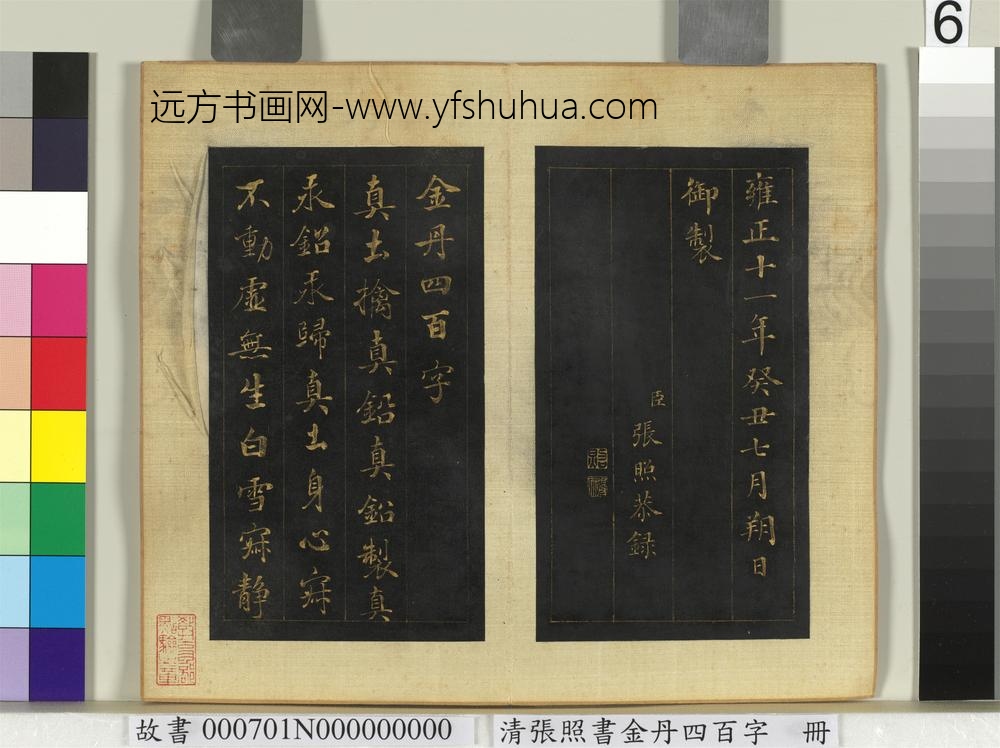 6
远方书画网-www.yfshuhua.com
雍正十一年癸丑七月朔日
御製
臣張照恭録
金丹四百字
真土擒真鉛真鉛製真
汞鉛汞歸真土身心寂
不動虛無生白雪寂静
故書 000701N000000000
清張照書金丹四百字 冊